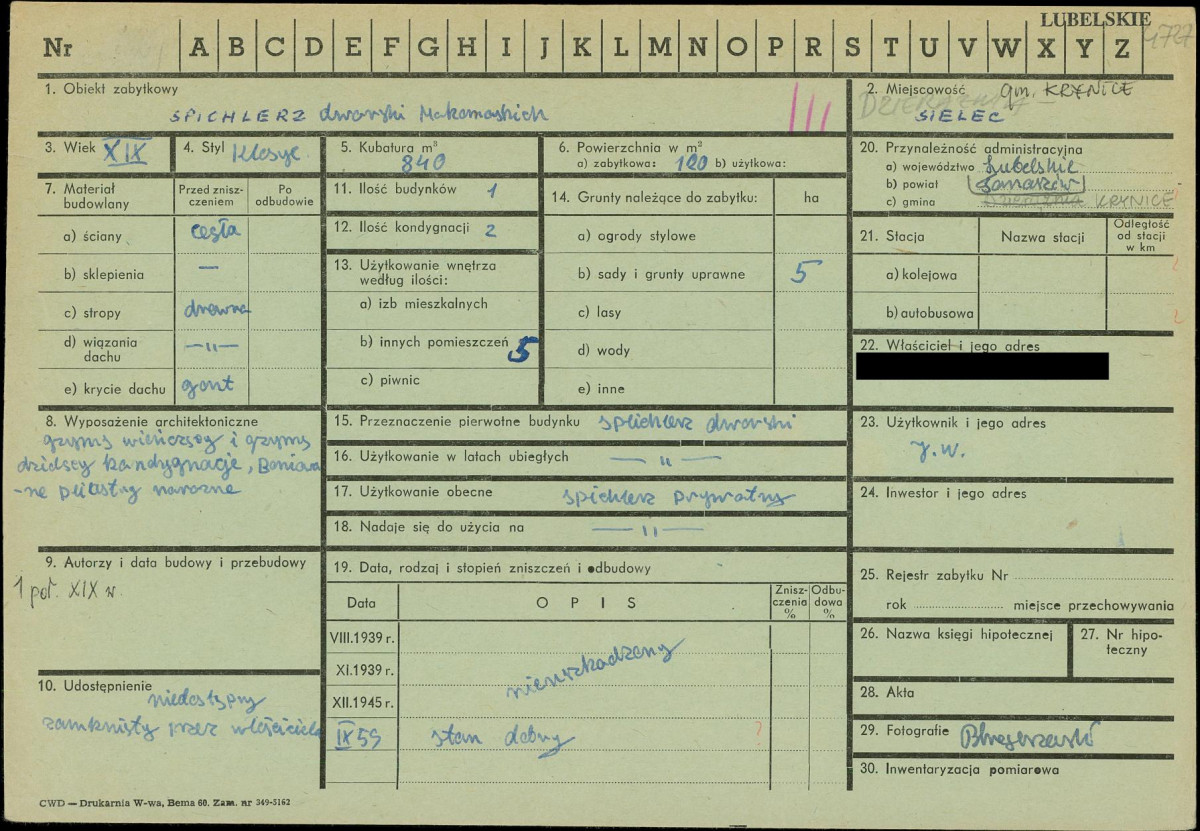 LUBELSKIE
4727
Nr A B C D E F G H I J K L M N O P R S T U V W X Y Z
1. Obiekt zabytkowy
SPICHLERZ dworski Makomaskich
III
2. Miejscowość gm. KRYNICE
SIELEC
3. Wiek XIX
4. Styl Klasyc.
5. Kubatura m³
840
6. Powierzchnia w m²
a) zabytkowa: 120 b) użytkowa:
20. Przynależność administracyjna
a) województwo Lubelskie
b) powiat
c) gmina KRYNICE
7. Materiał budowlany
Przed znisz-
czeniem
Po
odbudowie
a) ściany cegła
b) sklepienia —
c) stropy drewna
d) wiązania
dachu —"—
e) krycie dachu gont
11. Ilość budynków 1
12. Ilość kondygnacji 2
13. Użytkowanie wnętrza
według ilości:
a) izb mieszkalnych
b) innych pomieszczeń 5
c) piwnic
14. Grunty należące do zabytku: ha
a) ogrody stylowe
b) sady i grunty uprawne 5
c) lasy
d) wody
e) inne
21. Stacja
Nazwa stacji
Odległość
od stacji
w km
a) kolejowa
b) autobusowa
22. Właściciel i jego adres
8. Wyposażenie architektoniczne
gzyms wieńczący i gzyms
dzielący kondygnacje, Boniowa
-ne pilastry narożne
15. Przeznaczenie pierwotne budynku spichlerz dworski
16. Użytkowanie w latach ubiegłych —"—
17. Użytkowanie obecne spichlerz prywatny
18. Nadaje się do użycia na —"—
23. Użytkownik i jego adres
J.W.
24. Inwestor i jego adres
9. Autorzy i data budowy i przebudowy
1 poł. XIX w.
19. Data, rodzaj i stopień zniszczeń i odbudowy
Data
OPIS
Znisz-
czenia
%
Odbu-
dowa
%
VIII.1939 r.
XI.1939 r.
XII.1945 r.
nieuszkodzony
IX 59 stan dobry ?
25. Rejestr zabytku Nr
rok miejsce przechowywania
26. Nazwa księgi hipotecznej
27. Nr hipo-
teczny
10. Udostępnienie
niedostępny
zamknięty przez właściciela
28. Akta
29. Fotografie
30. Inwentaryzacja pomiarowa
CWD — Drukarnia W-wa, Bema 60. Zam. nr 349-5162